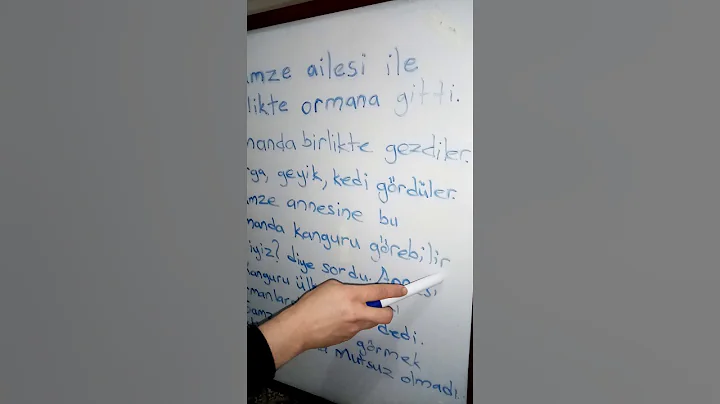 mze ailesi ile
likte ormana gitti.
manda birlikte gezdiler.
ga, geyik, kedi gördüler.
mze annesine bu
manda kanguru görebilir
iyiz? diye sordu. Annesi
kanguru ülk
manlar
dedi.
görmek
Mutsuz olmadı.